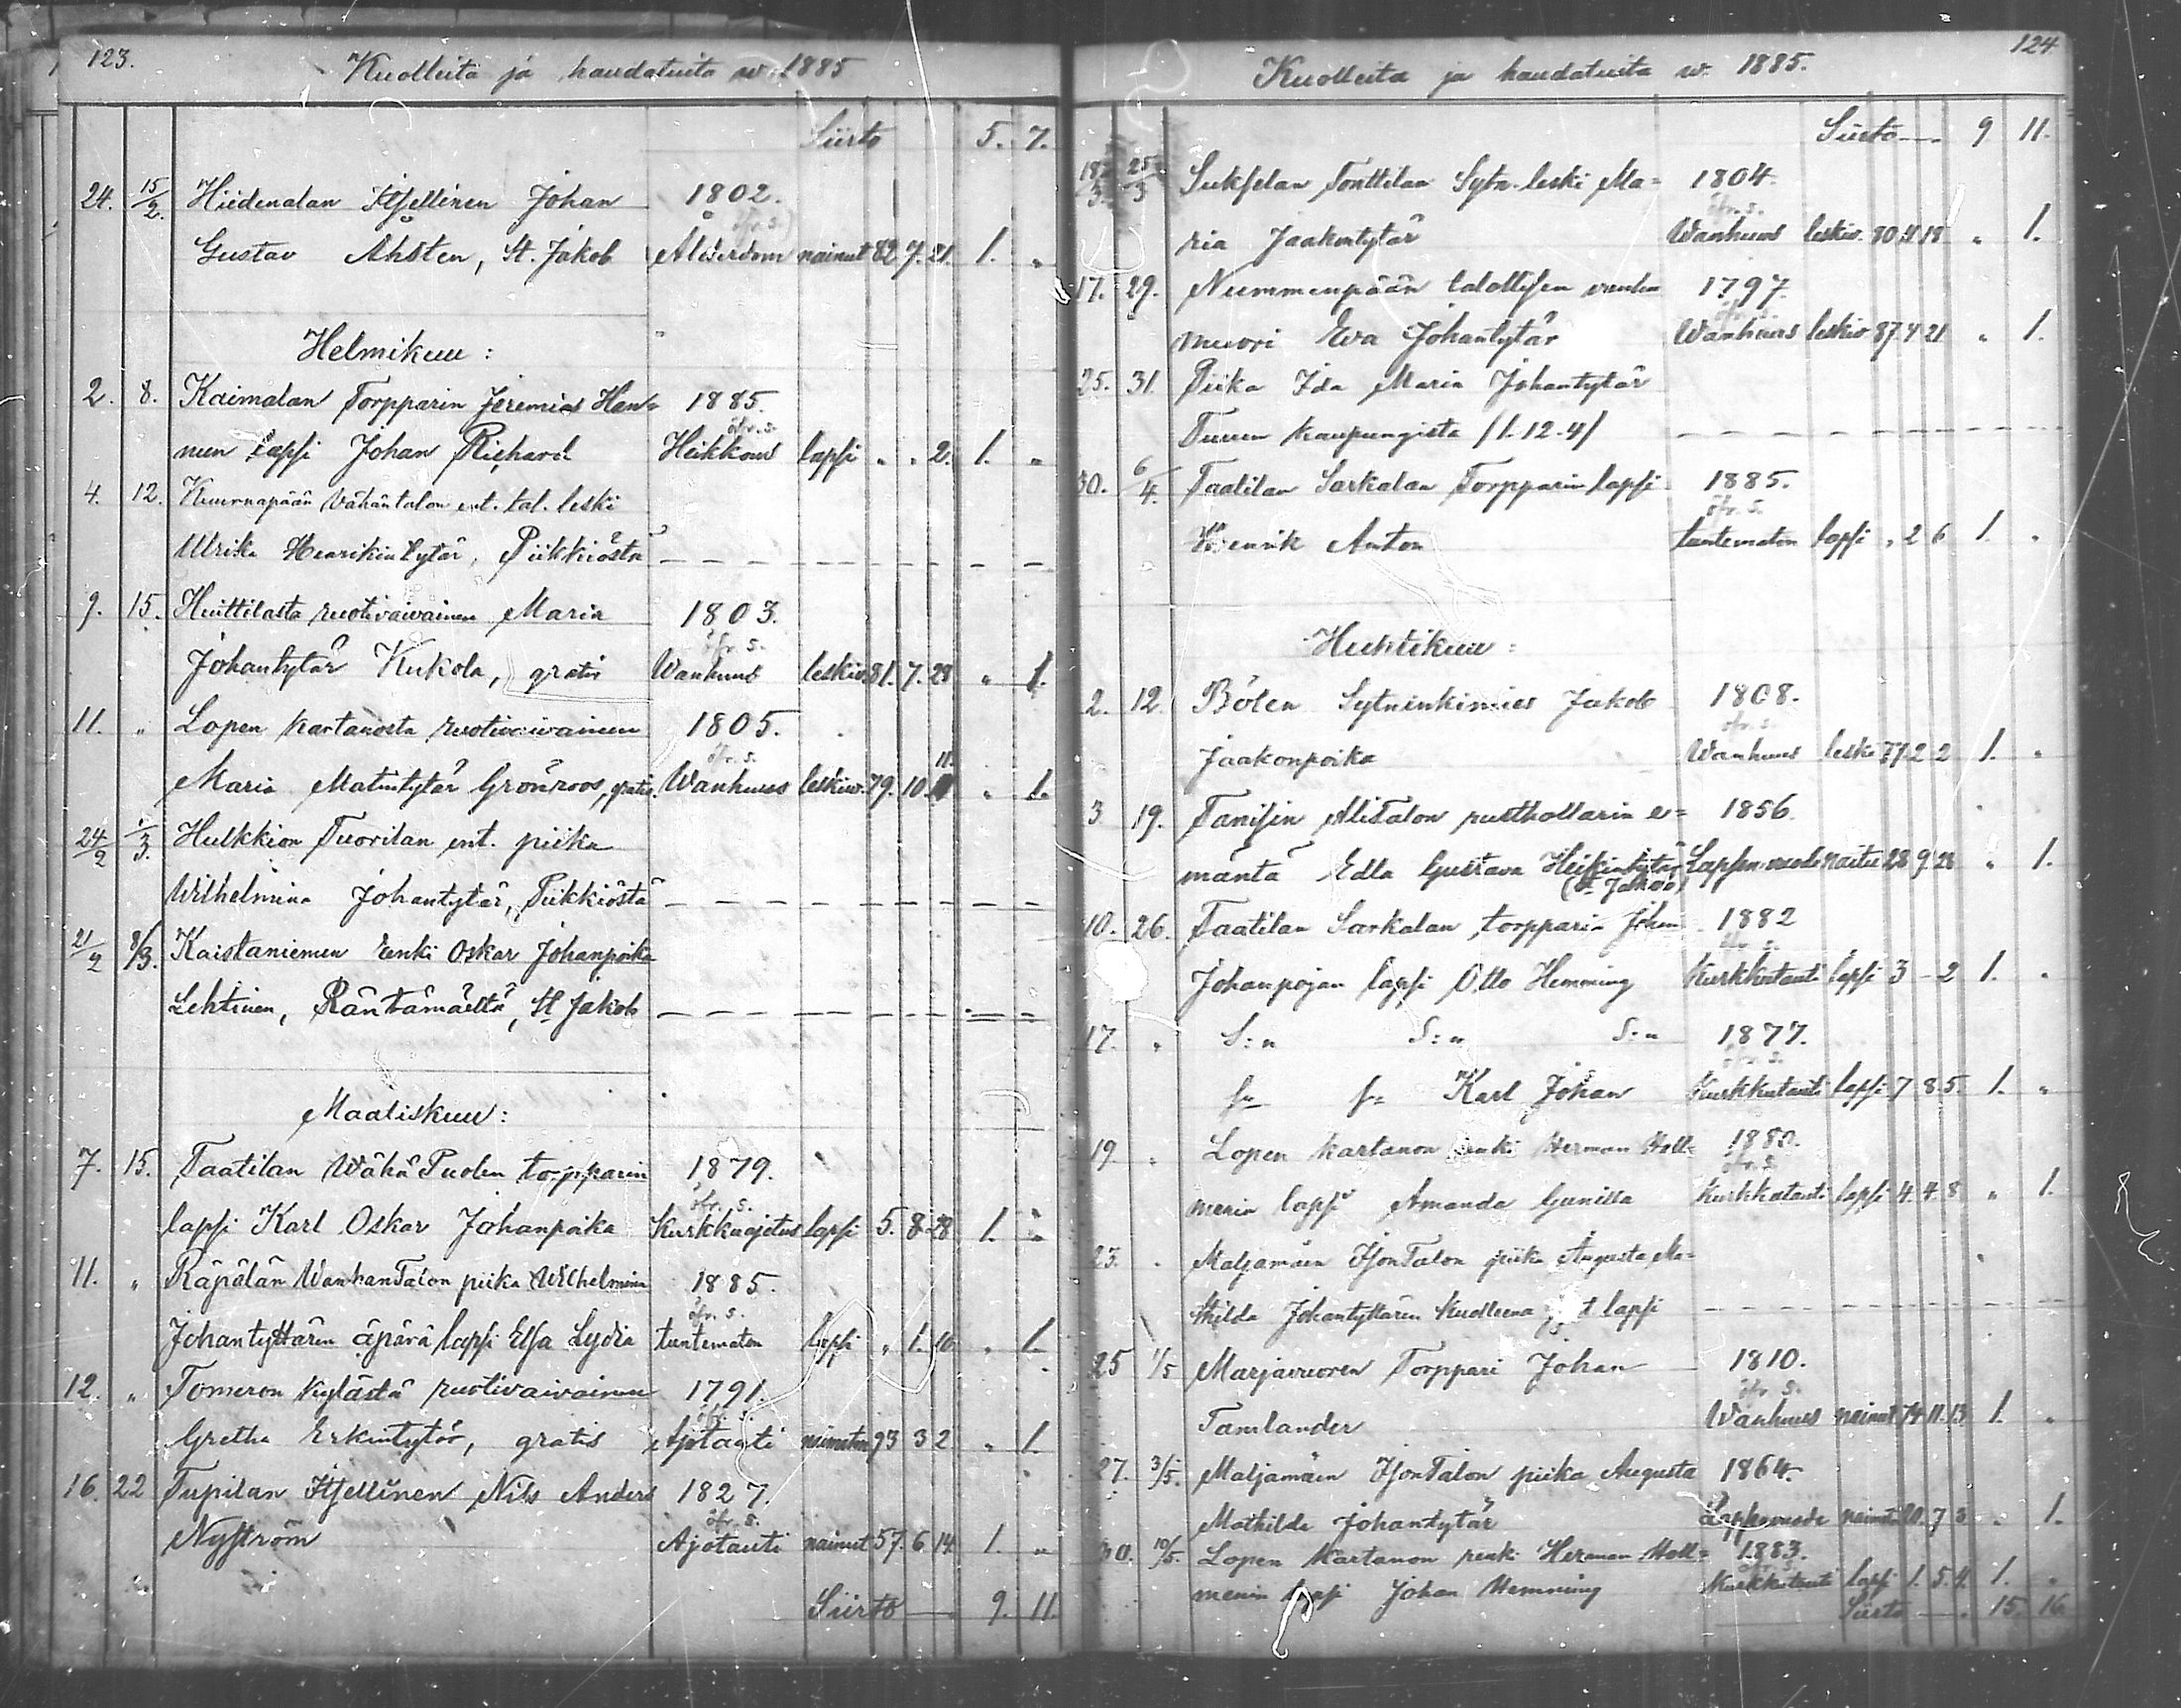 123.
Kuolleita ja haudatuita w. 1885
Siirto 5. 7.
24. 15/2. Hiidenalan Itsellinen Johan 1802.
öfr. s.
Gustav Ahsten, St. Jakob Ålderdom nainut 82. 7. 21. 1. "
Helmikuu:
2. 8. Kaimalan Torpparin Jeremias Han= 1885.
öfr. s.
nun lapsi Johan Richard Heikkous lapsi " " 2. 1. "
4. 12. Kuurnapään Vähäntalon ent. tal. leski
Ulrika Henrikintytär, Piikkiöstä
9. 15. Huittilasta ruotivaivainen Maria 1803.
öfr. s.
Johantytär Kukola, gratis Wanhuus leskiv. 81. 7. 28 " 1.
11. " Lopen kartanosta ruotivaivainen 1805.
öfr. s. 11.
Maria Matintytär Grönroos, gratis. Wanhuus leskiw. 79. 10. " 1.
24/2 1/3. Hulkkion Tuorilan ent. piika
Wilhelmina Johantytär, Piikkiöstä
21/2 8/3. Kaistaniemen Renki Oskar Johanpoika
Lehtinen, Räntämäeltä, St Jakob
Maaliskuu:
7. 15. Taatilan Wähä Puolen torpparin 1879.
öfr. s.
lapsi Karl Oskar Johanpoika Kurkkuajetus lapsi 5. 8. 28 1. "
11. " Räpälän WanhanTalon piika Wilhelmina 1885.
öfr. s.
Johantyttären äpärä lapsi Elsa Lydia tuntematon lapsi " 1. 16. " 1.
12. " Tomeron kylästä ruotivaivainen 1791.
öfr. s.
Gretha Erkintytär, gratis Ajotauti naimaton 93 3 2 " 1.
16. 22 Tupilan Itsellinen Nils Anders 1827.
öfr. s.
Nyström Ajotauti nainut 57. 6 14. 1. "
Siirto 9. 11.
124
Kuolleita ja haudatuita w. 1885.
Siirto 9 11.
18/3. 25/3 Tonttilan Sytn. leski Ma= 1804.
öfr. s.
ria Jaakontytär Wanhuus leskiv. 80. 11 18 " 1.
17. 29. Nummenpään talollisen vanha 1797.
muori Eva Johantytär Wanhuus leskiv 87. 4 21 " 1.
25. 31. Piika Ida Maria Johantytär
Turun kaupungista /1. 12. 4/
30. 6/4. Taatilan Sarkalan Torpparin lapsi 1885.
öfr. s.
Henrik Anton tuntematon lapsi " 2 6 1. "
Huhtikuu:
2. 12. Bölen Sytninkimies Jakob 1808.
öfr. s.
Jaakonpoika Wanhuus leski 77. 2 2 1. "
3 19. Tanisin AliTalon rusthollarin e= 1856.
mäntä Edla Gustava Heikintytär Lapsenvuode naitu 28 9. 28 " 1.
(St Jakob)
10. 26. Taatilan Sarkalan torpparin Johan 1882
öfr. s.
Johanpojan lapsi Otto Hemming Kurkkutauti lapsi 3 - 2 1. "
17. " S:n S:n S:n 1877.
öfr. s.
Karl Johan Kurkkutauti lapsi 7 8. 5. 1. "
19. " Lopen kartanon renki Herman Holl= 1880.
öfr. s.
menin lapsi Amanda Gunilla Kurkkutauti lapsi 4. 4. 8 " 1.
23. " Maljamäen IsonTalon piika Augusta Ma=
thilda Johantyttären kuolleena lapsi
25 1/5 Marjavuoren Torppari Johan 1810.
öfr. s.
Tamlander Wanhuus nainut 74. 11. 13. 1. "
27. 3/5. Maljamäen IsonTalon piika Augusta 1864.
Mathilda Johantytär Lapsenvuode naimaton 20. 7 3 " 1.
30. 10/5. Lopen Kartanon renki Herman Holl= 1883.
öfr. s.
menin lapsi Johan Hemming Kurkkutauti lapsi 1. 5. 4. 1. "
Siirto 15. 16